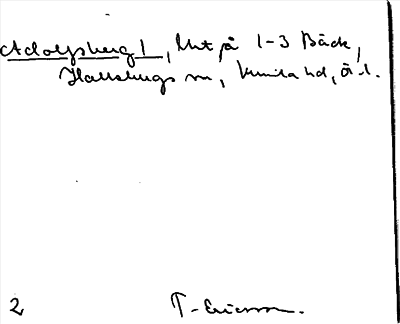 Adolfsberg 1, Mt på 1-3 Bäck,
Hallsbergs sn, Kumla hd, Ö.l.
2 T. Ericsson.